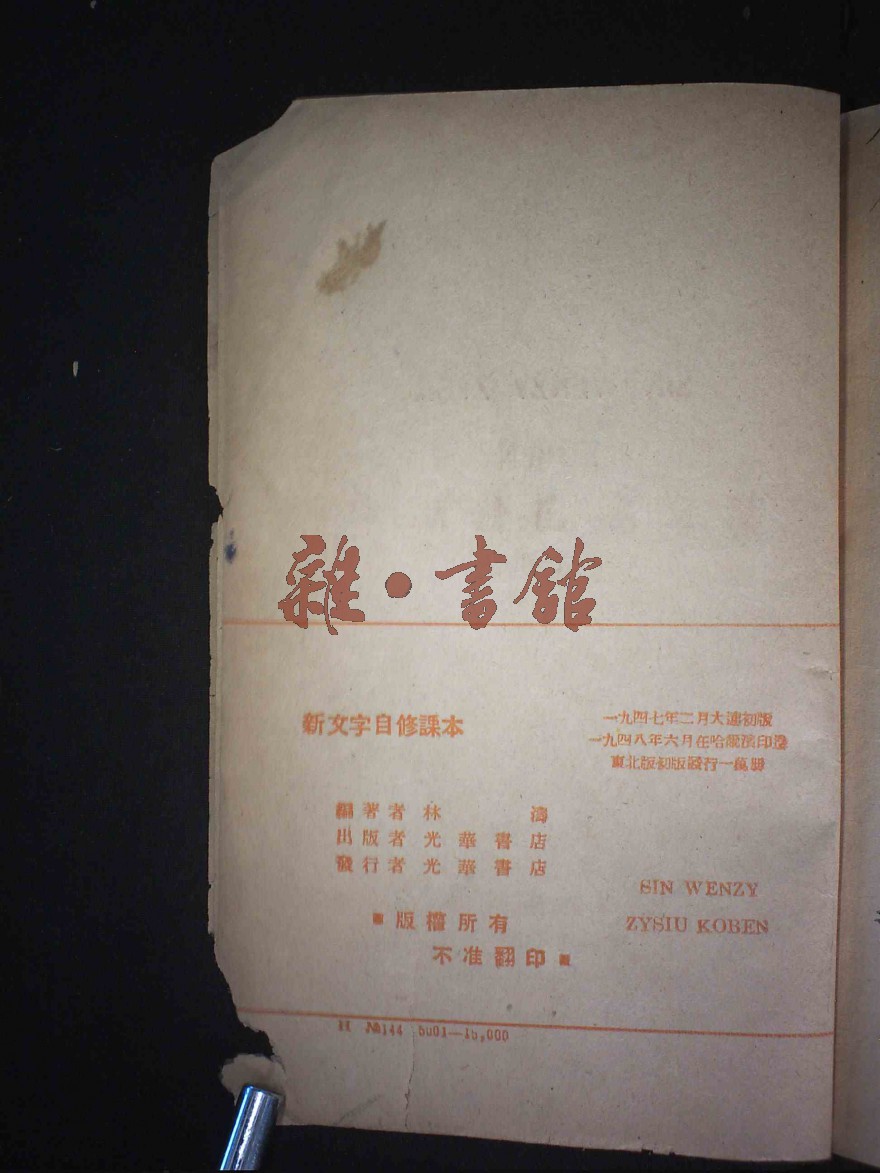 雜·書館
新文字自修課本
一九四七年二月大連初版
一九四八年六月在哈爾濱印造
東北版初版發行一萬册
編著者 林 濤
出版者 光華書店
發行者 光華書店
版權所有
不准翻印
SIN WENZY
ZYSIU KOBEN
H №144 5001—15,000